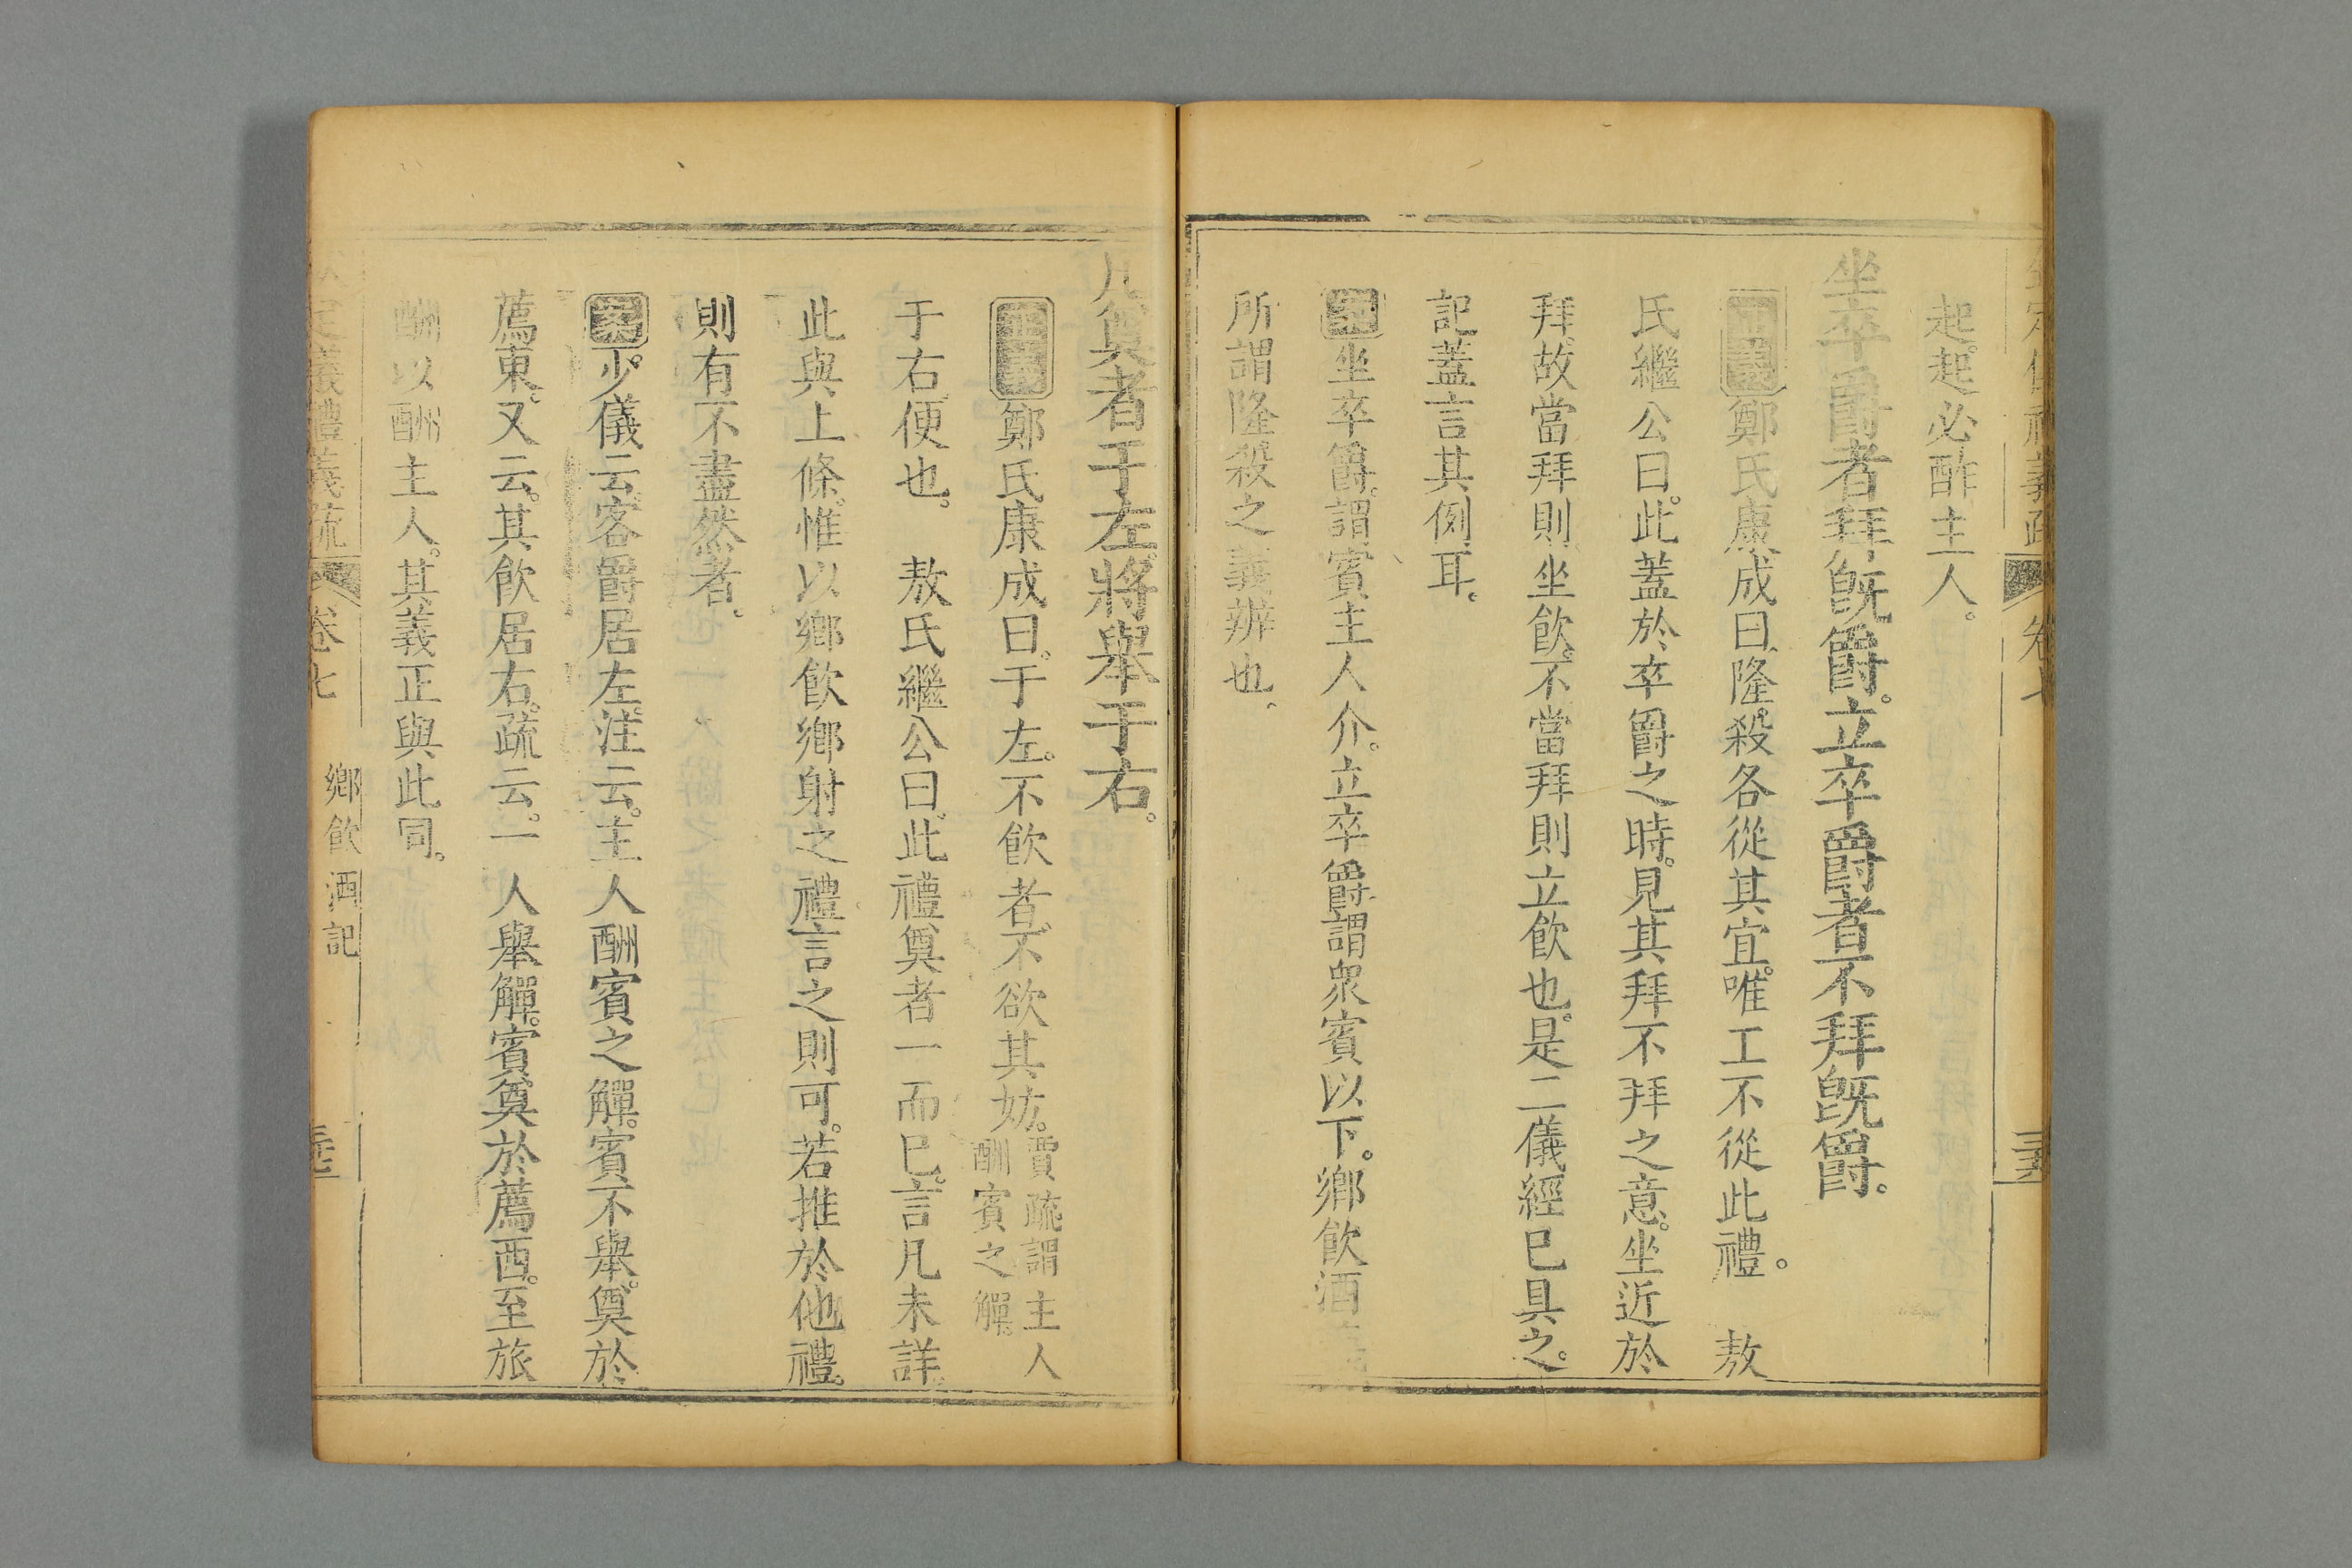 起起必酢主人。
坐卒爵者拜旣爵。立卒爵者不拜旣爵。
正義鄭氏康成曰。隆殺各從其宜。唯工不從此禮。 敖
氏繼公曰。此蓋於卒爵之時。見其拜不拜之意。坐近於
拜。故當拜則坐飮。不當拜則立飮也。是二儀經已具之。
記蓋言其例耳。
案坐卒爵。謂賓主人介。立卒爵謂衆賓以下。鄕飮酒
所謂隆殺之義辨也。
凡奠者于左。將舉于右。
正義鄭氏康成曰。于左。不飮者。不欲其妨。賈疏謂主人
酬賓之觶。
于右。便也。 敖氏繼公曰。此禮奠者一而已。言凡未詳。
此與上條。惟以鄕飮鄕射之禮言之則可。若推於他禮。
則有不盡然者。
案少儀云。客爵居左。注云。主人酬賓之觶。賓不舉。奠於
薦東。又云。其飮居右。疏云。一人舉觶。賓奠於薦西。至旅
酬以酬主人。其義正與此同。
定儀禮義疏 卷七 鄕飮酒記